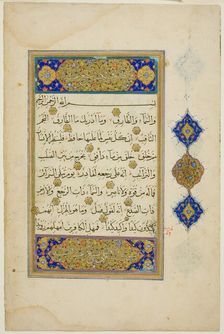 بسم الله الرحمن الرحيم
والسماء والطارق وما ادريك ما الطارق النجم
الثاقب ان كل نفس لما عليها حافظ فلينظر
الانسان مم خلق خلق من ماء دافق يخرج من بين الصلب
والترائب انه على رجعه لقادر يوم تبلى السرائر
فما له من قوة ولا ناصر والسماء ذات الرجع والارض
ذات الصدع انه لقول فصل وما هو بالهزل انهم
يكيدون كيدا واكيد كيدا فمهل الكافرين امهلهم رويدا